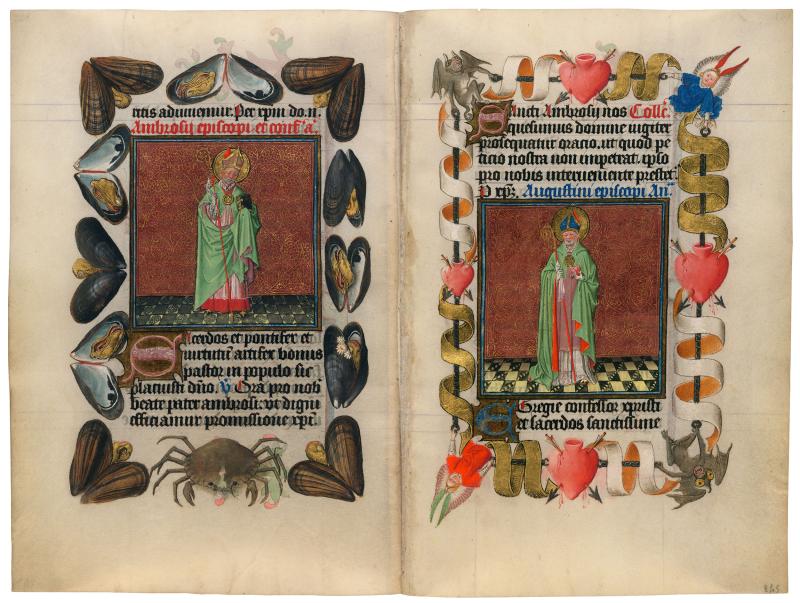 titis adiuvemur. Per xpm do. n.
Ambrosii episcopi et conf. a.
Sacerdos et pontifex et
virtutum artifex bonus
pastor in populo sic
placuisti dno. V Ora pro nob
beate pater ambrosi. ut digni
efficiamur promissione xpi
Sancti Ambrosii nos Collc.
quesumus domine iugiter
prosequatur oracio. ut quod pe
ticio nostra non impetrat. ipso
pro nobis interveniente prestet.
P xpz. Augustini episcopi An.
Egregie confessor xpristi
et sacerdos sanctissime